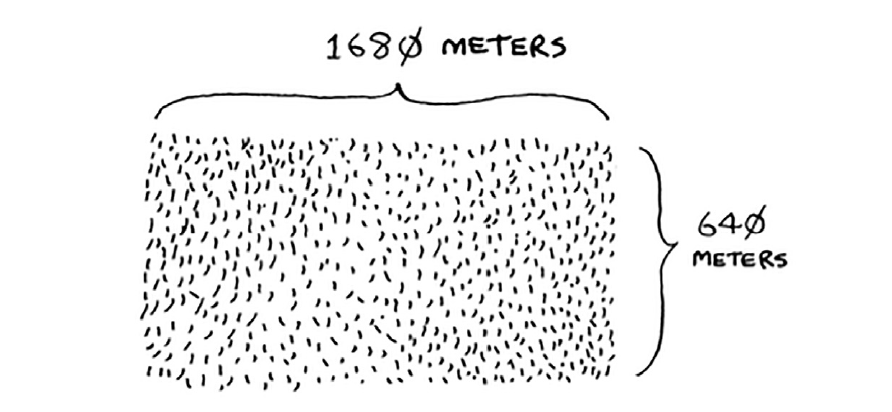 1680 METERS
640
METERS